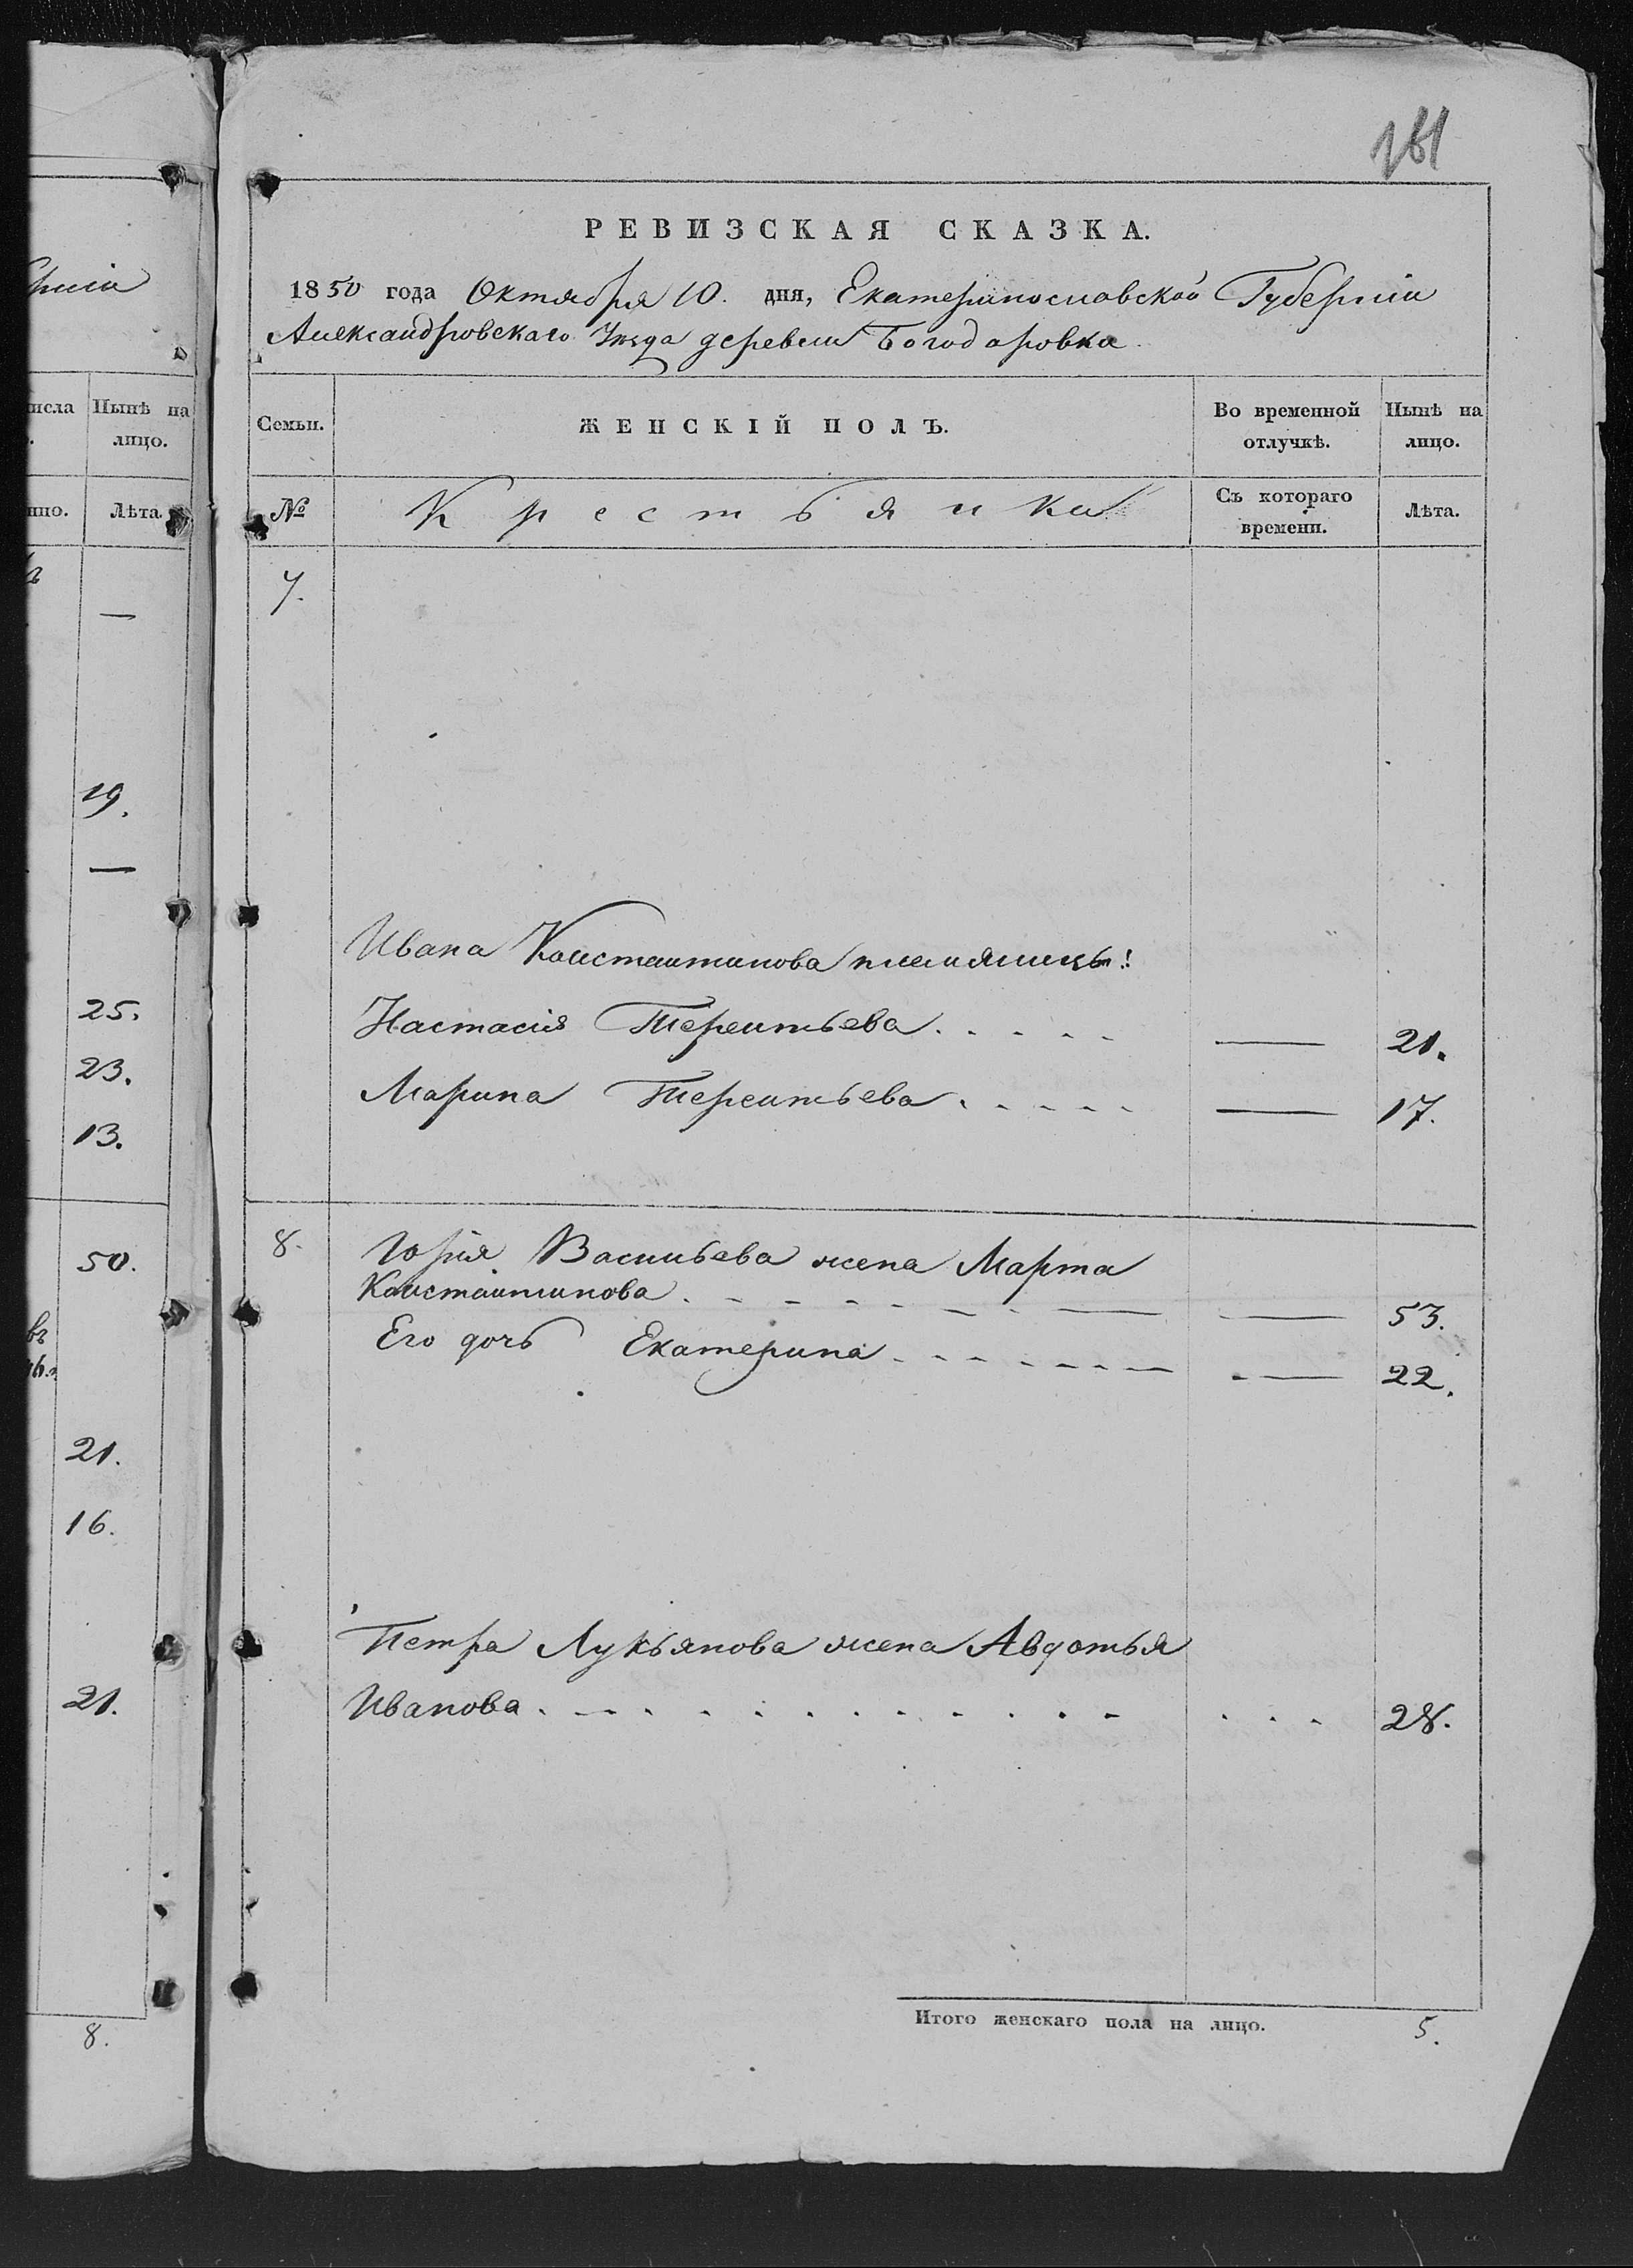 181
РЕВИЗСКАЯ СКАЗКА.
1850 года Октября 10. дня, Екатеринославской Губерніи
Александровскаго Уѣзда деревни Богодаровка
Семьи.
ЖЕНСКІЙ ПОЛЪ.
Во временной отлучкѣ.
Нынѣ на лицо.
№
Крестьянки
Съ котораго времени.
Лѣта.
7.
Ивана Константинова племянницы:
Настасія Терентьева. . . . . — 21.
Марина Терентьева. . . . . — 17.
8. Юрія Васильева жена Марта
Константинова. — 53.
Его дочь Екатерина. — 22.
Петра Лукьянова жена Авдотья
Иванова. . . . 28.
Итого женскаго пола на лицо. 5.
рніи
исла
Нынѣ на лицо.
нно.
Лѣта.
—
19.
—
25.
23.
13.
50.
въ
21.
16.
21.
8.